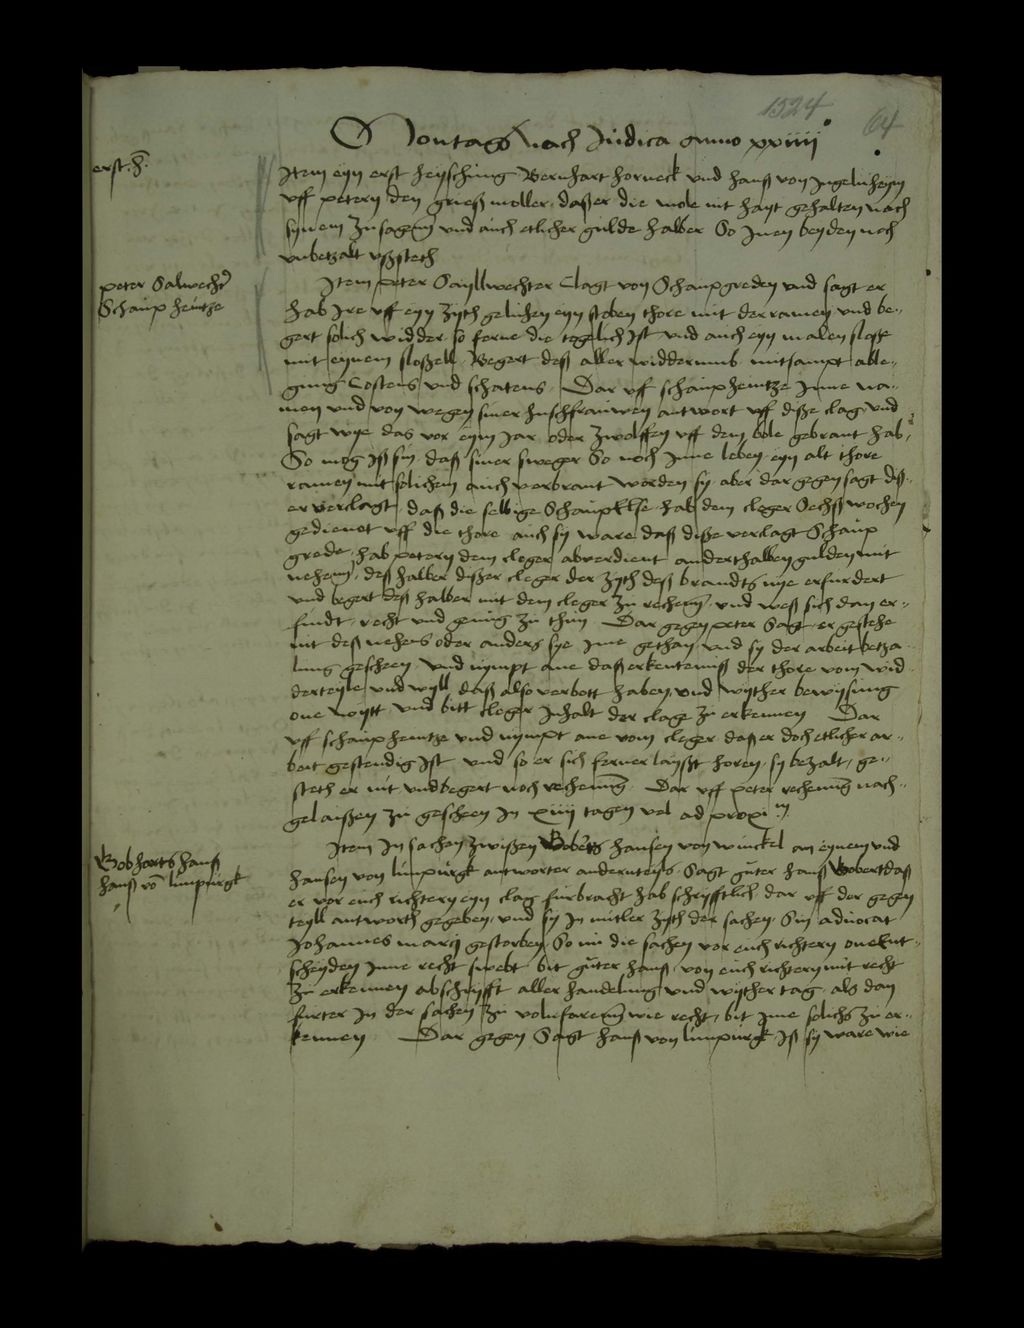 1524 64
Montag Nach Judica anno xxiiii
erst. h.
Item eyn erst heyschung Bernhart Horneck und hanß von Ingelnheym
uff petern den grieß moller, daß er die mole nit hayt gehalten nach
synem zusagen und auch etlicher gulde halber So Inen beyden noch
unbetzalt ußsteth
peter Salwechter
Schaup hentze
Item peter Sayllwechter Clagt von Schaupgreden und sagt er
hab Ire uff eyn zyth geluhen eyn stoben thore mit der ramen und be-
gert solich widder so ferne die togelich Ist und auch eyn malen sloße
mit eynem sloßell. Begert deß aller widderumb mitsampt able-
gung Costens und schatens. Dar uff schaup hentze Inne na-
men und von wegen siner hußfrauwen antwort uff diße clag und
sagt wye das vor eym Jar oder zwolffen uff dem bole gebrant hab,
So mog Iß sin daß siner sweger So noch Inne leben eyn alt thore
ramen mit solichem auch verbrant worden sy aber dar gegen sagt diß
er verclagt, daß die selbige Schaup hab dem cleger Sechß wochen
gedienet uff die thore auch sy ware daß diße verclagt Schaup
grede, hab petern dem cleger abverdient anderthalben gulden mit
nehen, deß halber dißer cleger der zyth deß brandts nye erfurdert
und begert deß halber mit dem cleger zu rechen, und weß sich dan er-
findt, recht und genug zu thun Dar gegen peter Sagt, er gestehe
nit deß nehens oder anders sye Ime gethan und sy der arbeit betza-
lung gescheen, und nympt ane daß erkentenuß der thore vom wid-
derteyle und wyll daß also verbott haben und wyther bewysung
one noytt und bitt cleger Inhalt der clage zu erkennen Dar
uff schaup hentze und nympt ane vom cleger daß er doch etlicher ar-
beit gestendig Ist und so er sich ferner layßt horen, sy bezalt, ge-
steth er nit und begert noch rechenung. Dar uff peter rechenung nach-
gelaißen zu gescheen In xiiii tagen vel ad proximum.
Gobharts hanß
hanß von limpurgk
Item In sachen zwißen hansen von winckel an eynem und
hansen von limpurgk antworter anderteyls. Sagt guter hanß daß
er vor euch richtern eyn clag furbracht hab schryfftlich dar uff der gegen
teyll antworth gegeben, und sy In mitler zyth der sachen, Sin advocat
Johannes marci gestorben, So nu die sachen vor euch richtern onent-
scheyden Inne recht swebt bit guter hanß, von euch richtern mit recht
zu erkennen abschryfft aller handelung und wyther tag, als dan
furter In der sachen zu volnfaren wie recht, bit Ime solichs zu er-
kennen. Dar gegen Sagt hanß von limpurgk, Iß sy ware wie